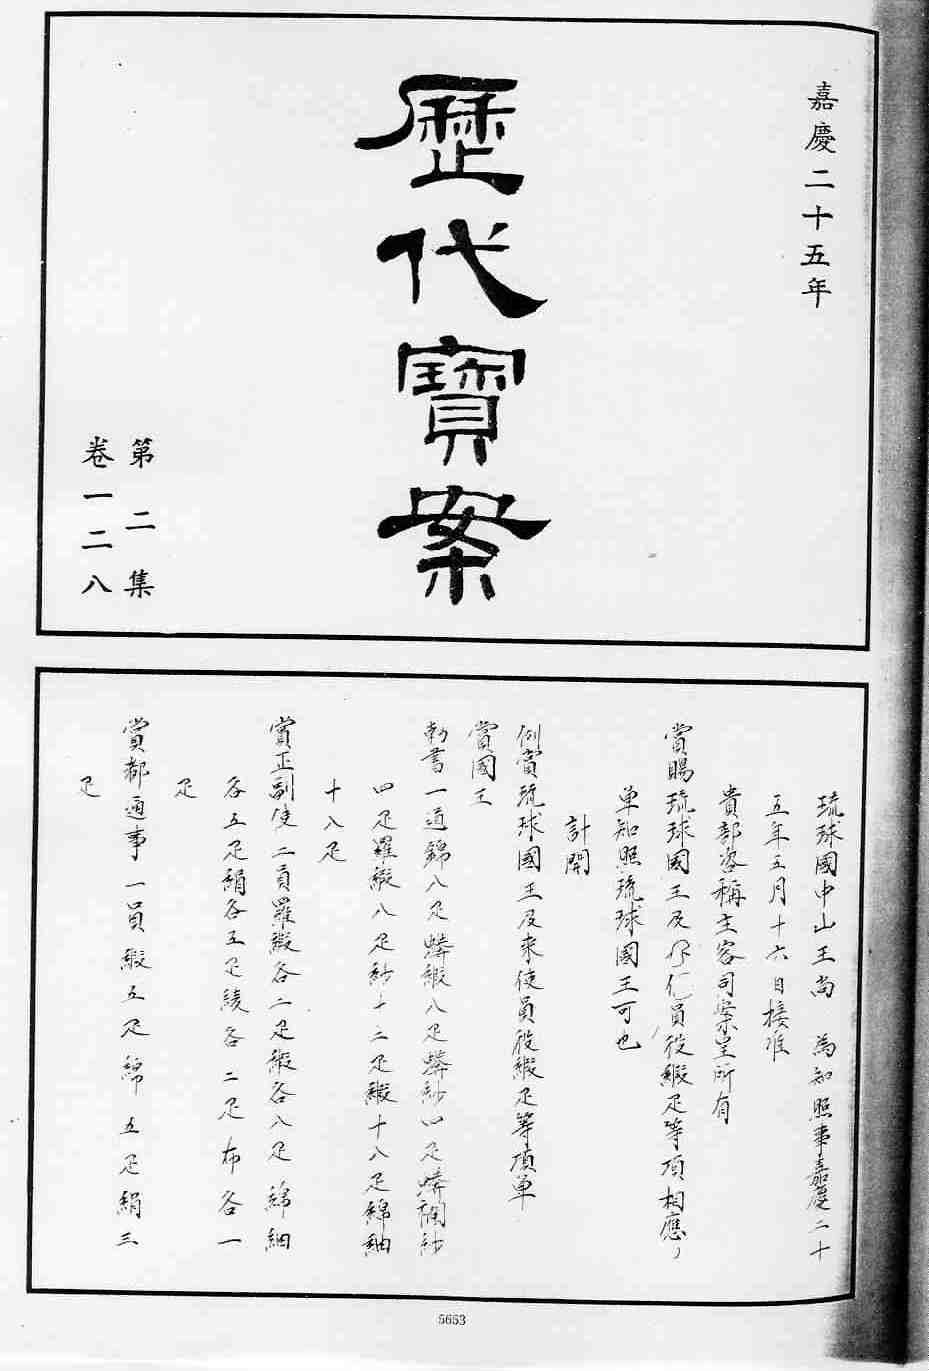 嘉慶二十五年
歷代寶案
第二集
卷一二八
琉球國中山王尚 為知照事嘉慶二十
五年五月十六日接准
貴部咨稱主客司案呈所有
賞賜琉球國王及 員役緞疋等項相應
单知照琉球國王可也
計開
例賞琉球國王及来使員役緞疋等項单
賞國王
勅書一道錦八疋蟒緞八疋蟒紗四疋蟒襴紗
四疋羅緞八疋紗十二疋緞十八疋綿紬
十八疋
賞正副使二員羅緞各二疋緞各八疋綿紬
各五疋絹各五疋綾各二疋布各一
疋
賞都通事一員緞五疋綿五疋絹三
疋
5653